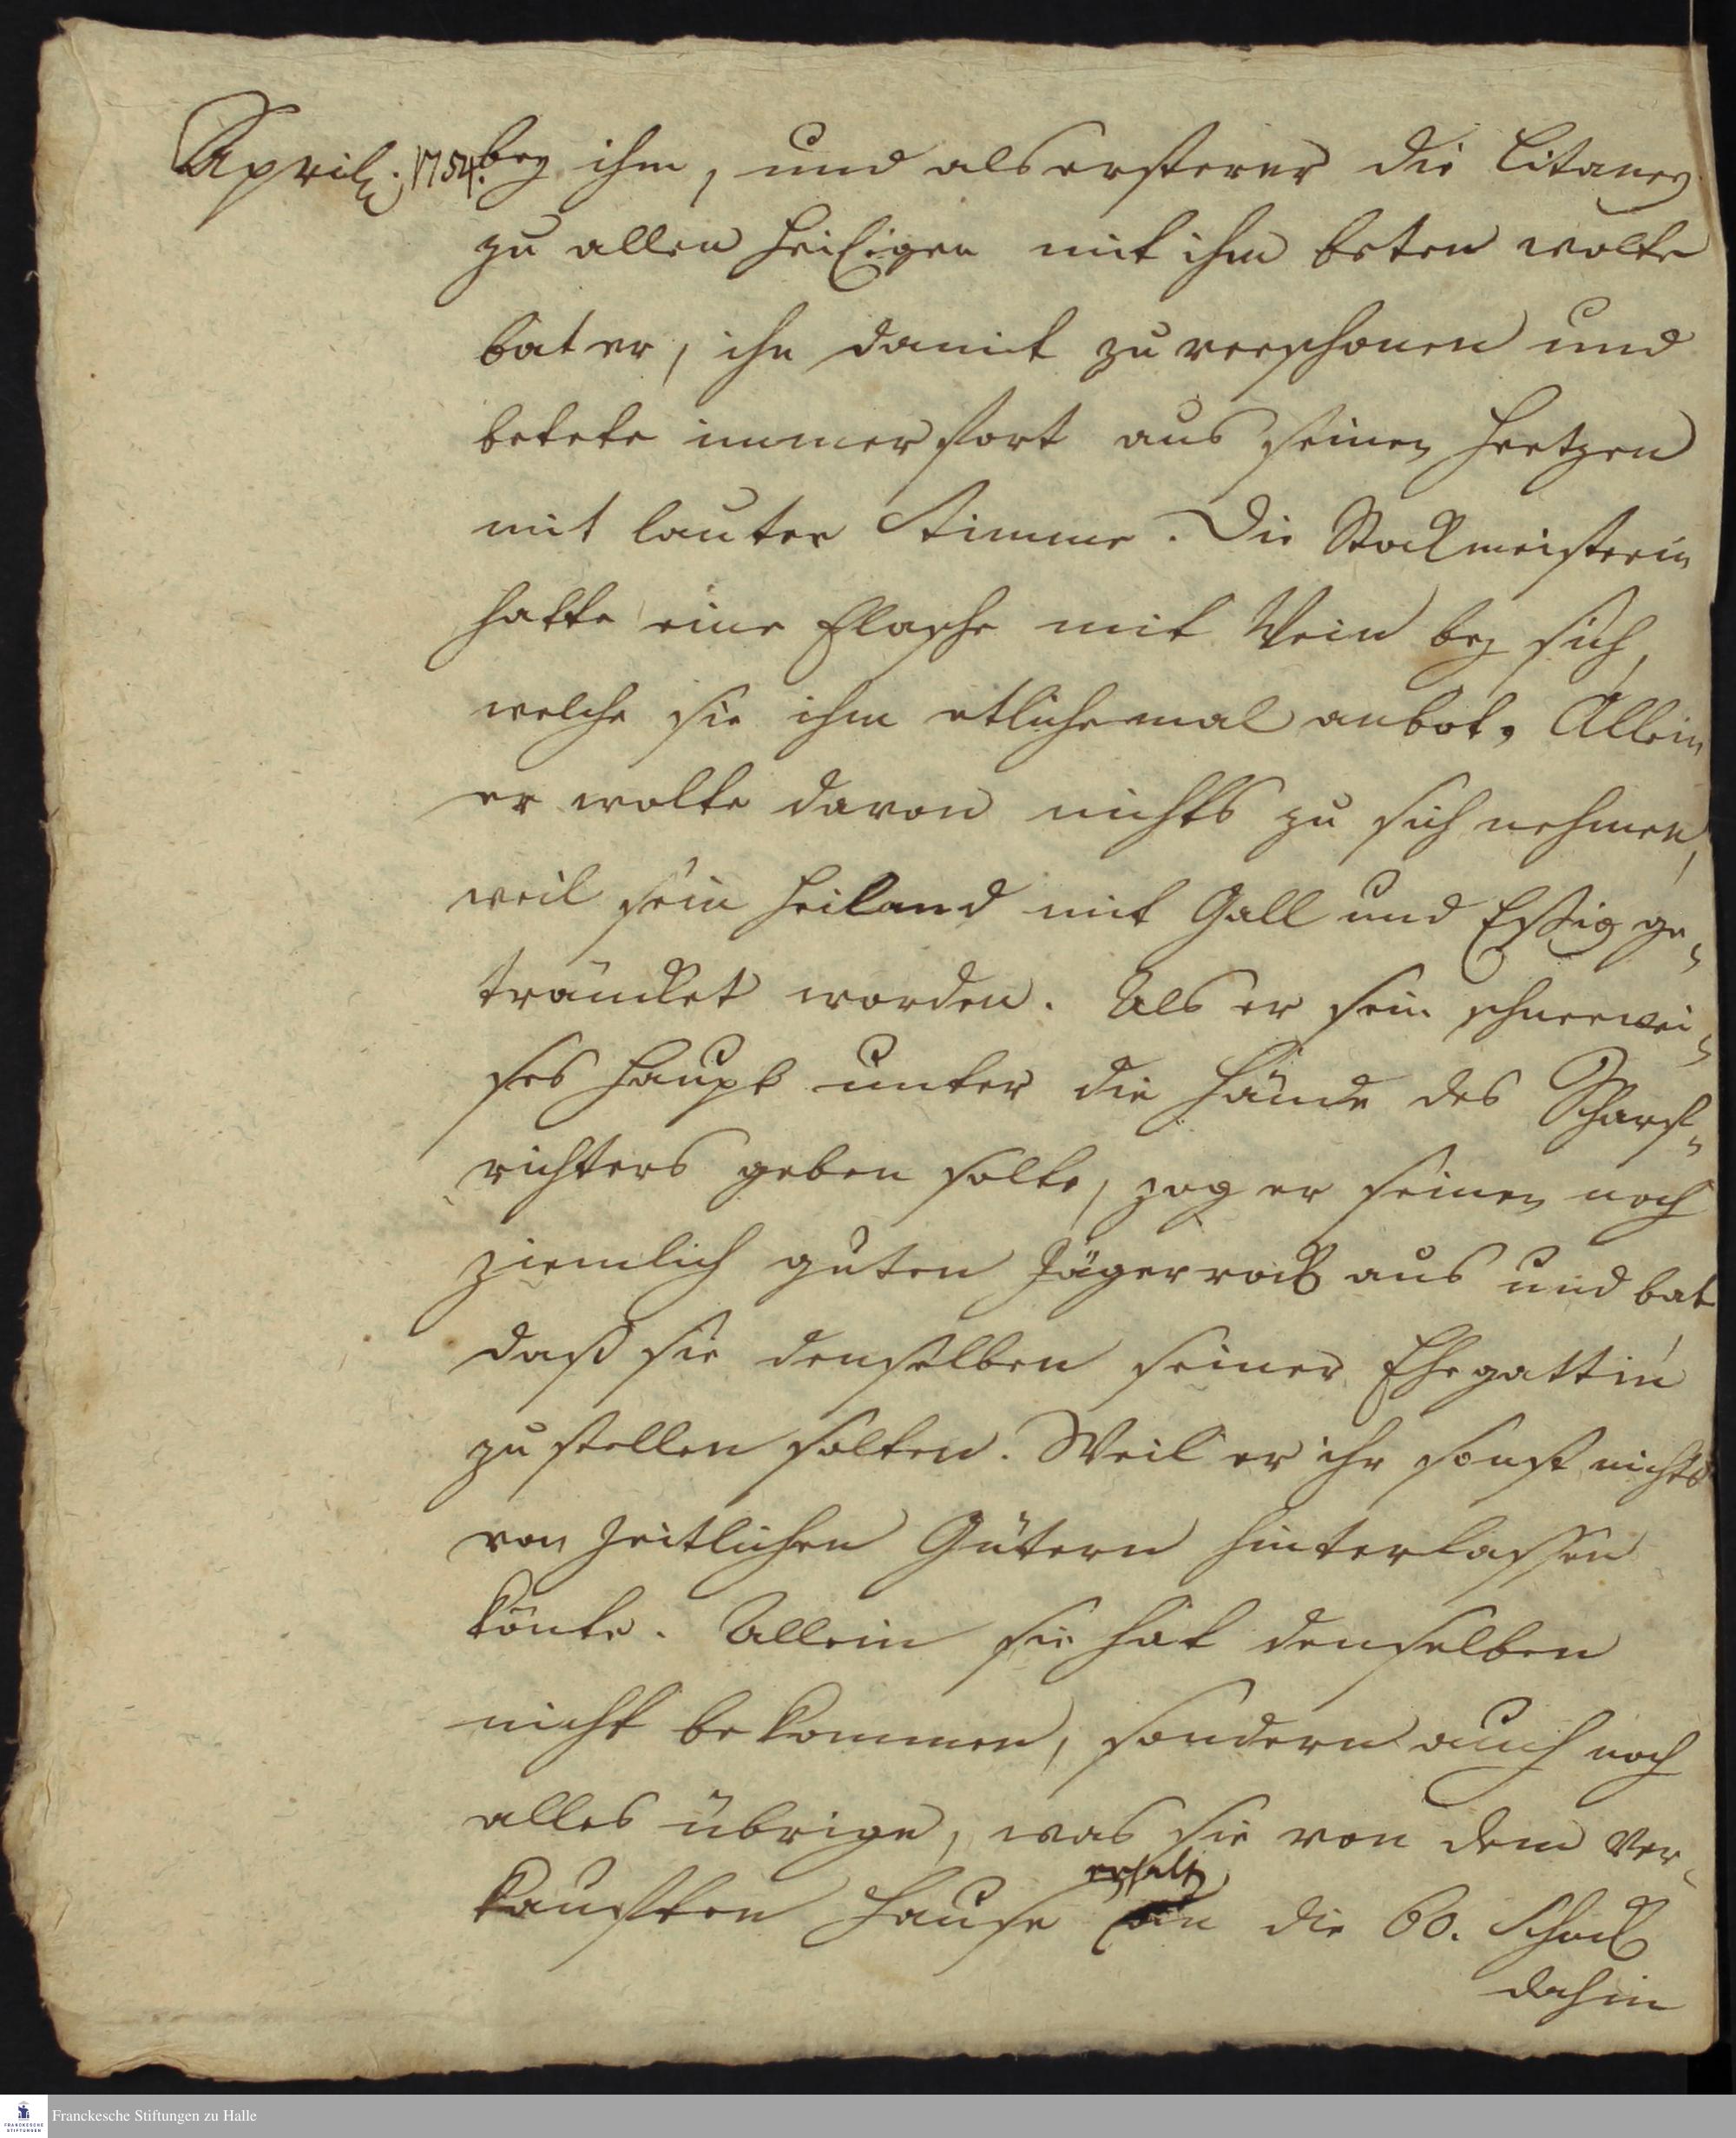 April. 1754. bey ihm, und als ersterer die Litaney
zu allen Heiligen mit ihm beten wolte
bat er, ihn damit zu verschonen und
betete immer fort aus seinen Hertzen
mit lauter Stimme. Die Stockmeisterin
hatte eine Flasche mit Wein bey sich,
welche sie ihm etlichemal anbot, Allein
er wolte davon nichts zu sich nehmen,
weil sein Heiland mit Gall und Eßig ge-
träncket worden. Als er sein schneewei-
ses Haupt unter die Hände des Scharf-
richters geben solte, zog er seinen noch
ziemlich guten Jägerrock aus und bat
daß sie denselben seiner Ehegattin
zu stellen solten. Weil er ihr sonst nichts
von zeitlichen Gütern hinterlassen
könte. Allein sie hat denselben
nicht bekommen, sondern auch noch
alles übrige, was sie von dem ver-
erhalt
kaufften Hause an die 60. Schock
dahin
FRANCKESCHE STIFTUNGEN
Franckesche Stiftungen zu Halle